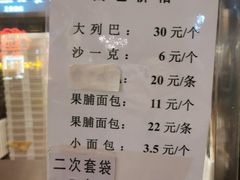 大列巴： 30 元/个
沙一克： 6 元/个
20 元/条
果脯面包： 11 元/个
果脯面包： 22 元/条
小面包： 3.5 元/个
二次套袋